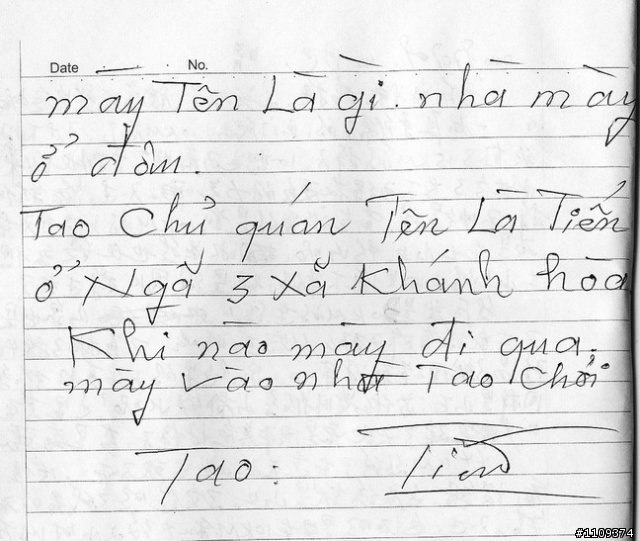 Date No.
may Tên Là gì. nhà mày
ở đâu.
Tao Chủ quán Tên Là Tiến
ở Ngã 3 xã Khánh hòa
Khi nào mày đi qua.
mày vào nhà Tao Chơi
Tao: Tiến
#1109374